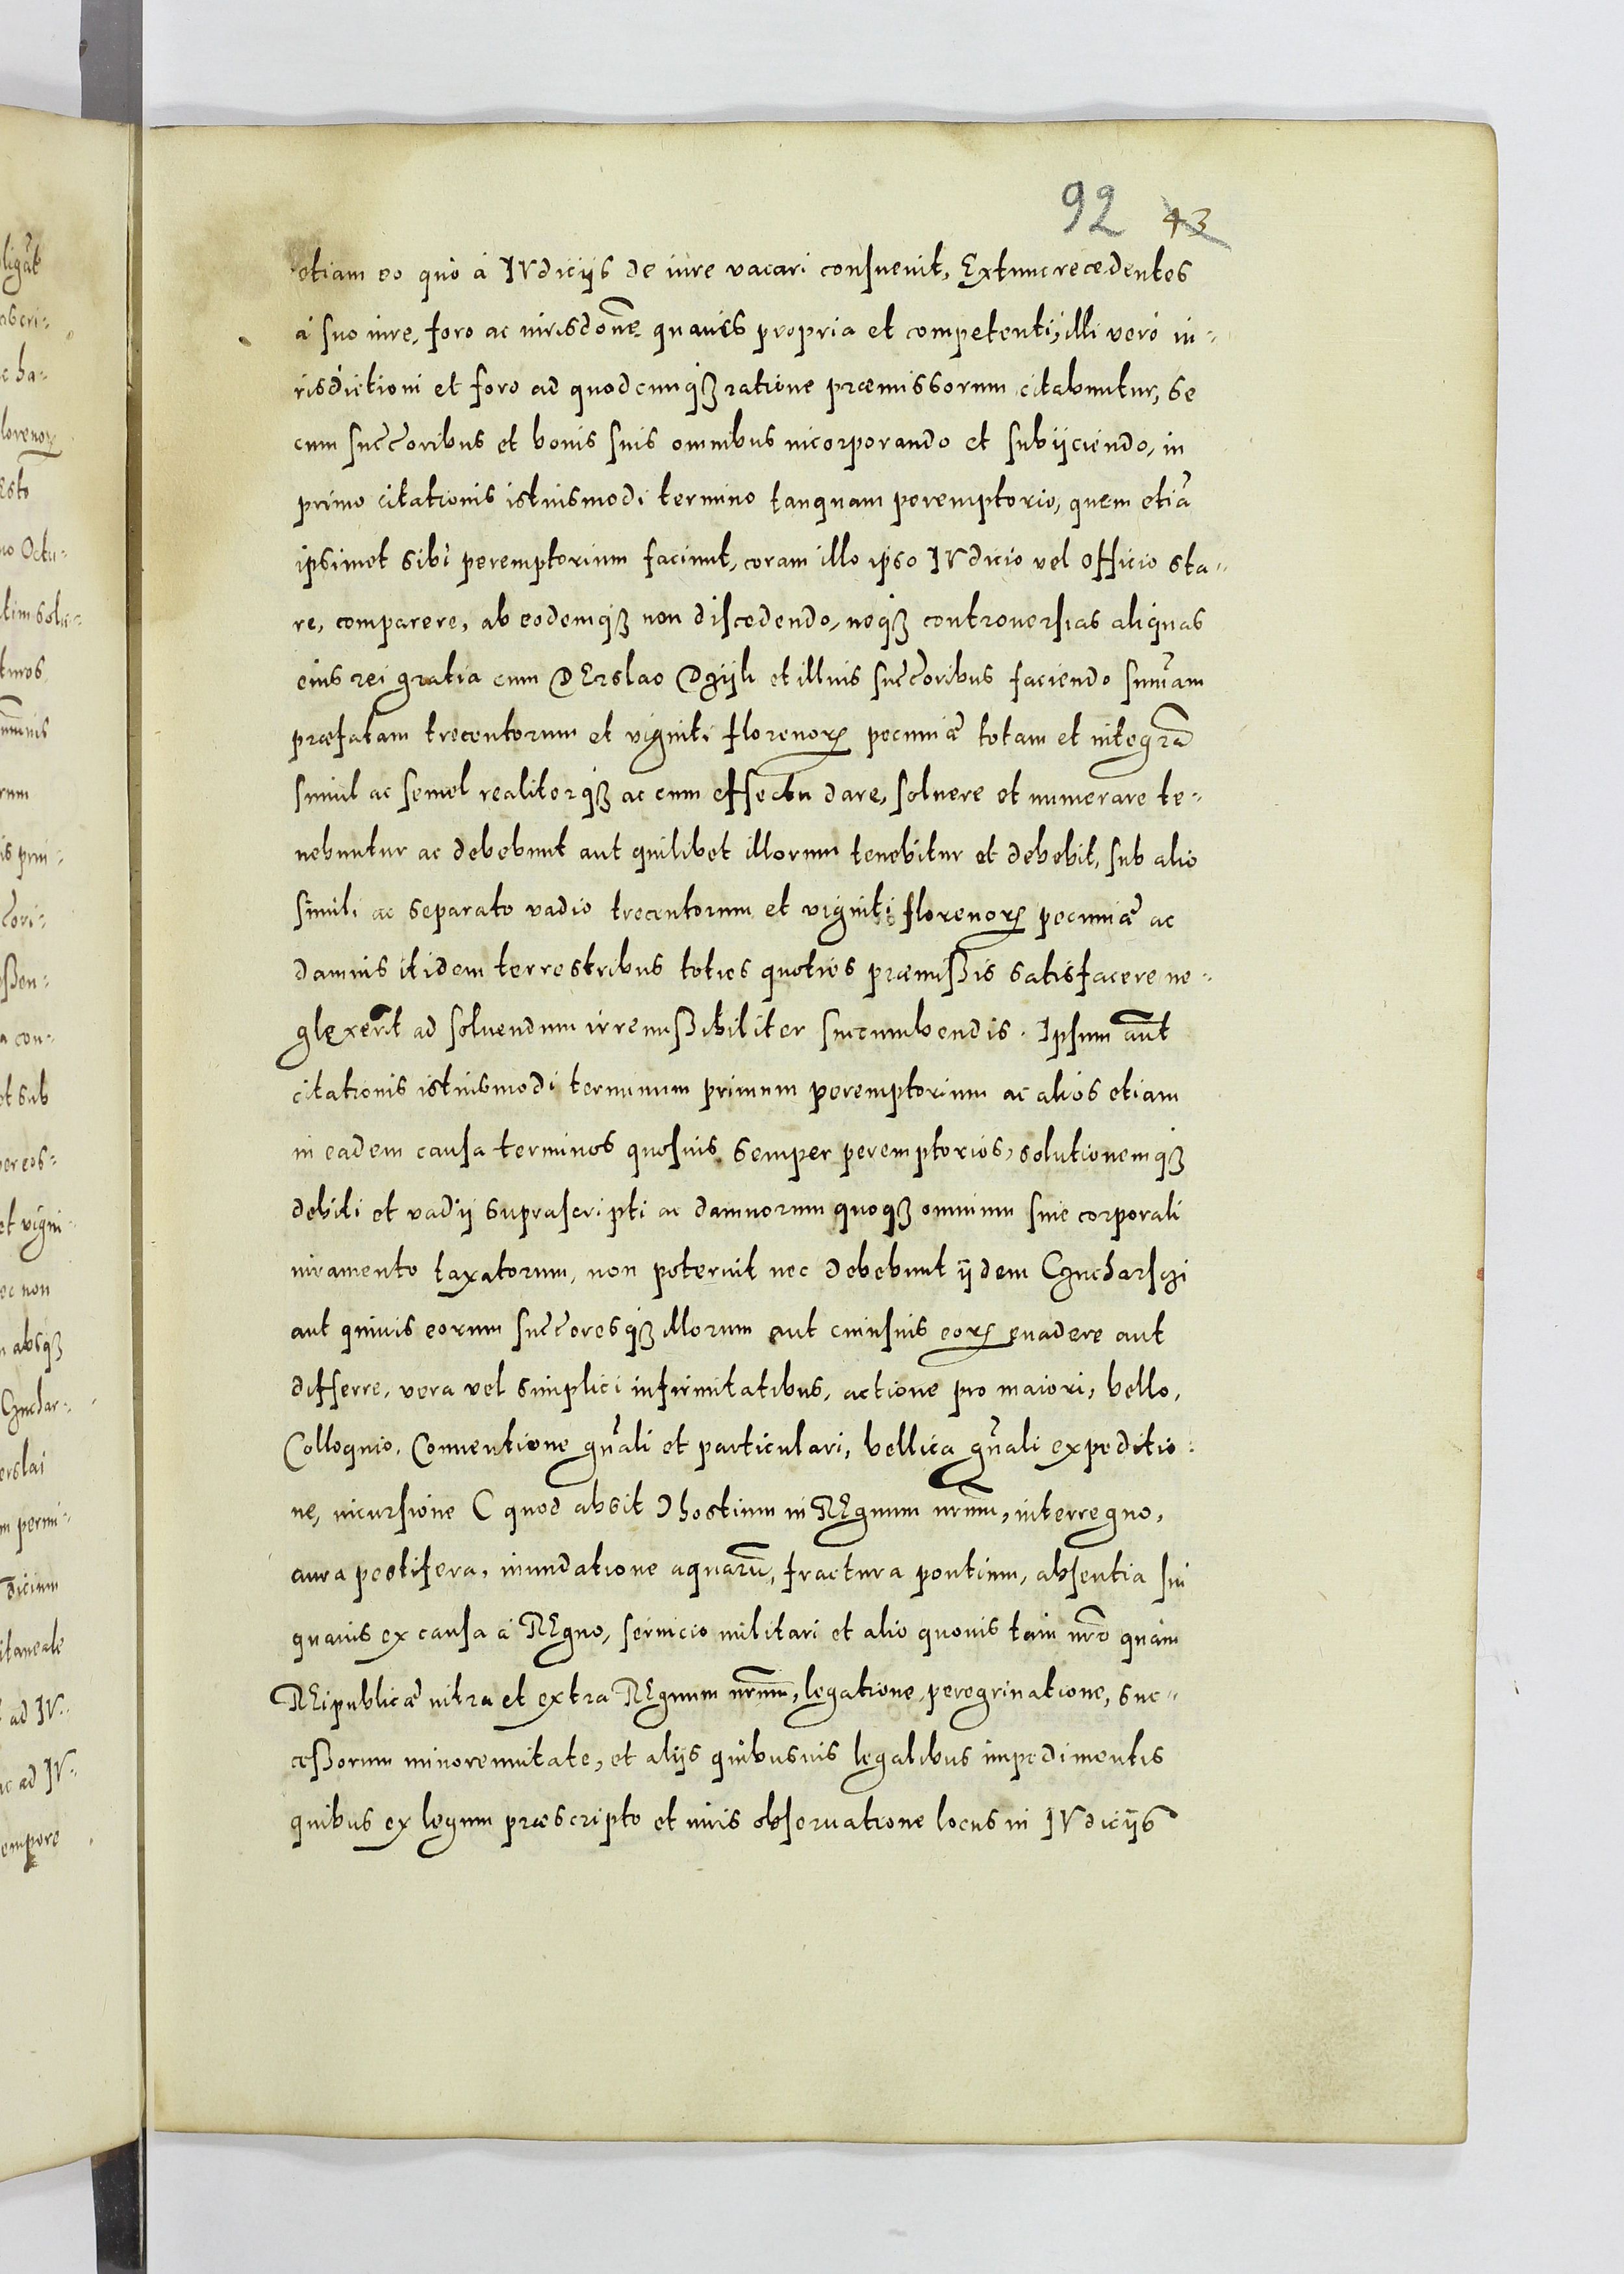 92 43
etiam eo quo à IVdicijs de iure vacari consueuit, Extunc recedentes
à suo iure, foro ac iurisdoñe quauis propria et competenti, illi verò iu-
risdictioni et foro ad quodcunqꝫ ratione præmissorum citabuntur, se
cum succ̃oribus et bonis suis omnibus incorporando et subijciendo, in
primo citationis istiusmodi termino tanquam peremptorio, quem etiã
ipsimet sibi peremptorium faciunt, coram illo ipso IVdicio vel officio sta-
re, comparere, ab eodemqꝫ non discedendo, neqꝫ controuersias aliquas
eius rei gratia cum DErslao Dzijk et illius succ̃oribus faciendo sum̃am
præfatam trecentorum et viginti florenoꝝ pecuniæ totam et integrã
simul ac semel realiterqꝫ ac cum effectu dare, soluere et numerare te-
nebuntur ac debebunt aut quilibet illorum tenebitur et debebit, sub alio
simili ac separato vadio trecentorum et viginti florenoꝝ pecuniæ ac
damnis itidem terrestribus toties quoties præmißis satisfacere ne-
glexerĩt ad soluendum irremißibiliter succumbendis. Ipsum aũt
citationis istiusmodi terminum primum peremptorium ac alios etiam
in eadem causa terminos quosuis semper peremptorios, solutionemqꝫ
debiti et vadij suprascripti ac damnorum quoqꝫ omnium sine corporali
iuramento taxatorum, non poterint nec debebunt ijdem Czucharsczi
aut quiuis eorum succ̃oresqꝫ illorum aut cuiusuis eoꝝ euadere aut
differre, vera vel simplici infirmitatibus, actione pro maiori, bello,
Colloquio, Conuentione gñali et particulari, bellica gñali expeditio-
ne, incursione (quod absit) hostium in REgnum nrm̃, interregno,
aura pestifera, inundatione aquarũ, fractura pontium, absentia sui
quauis ex causa à REgno, seruicio militari et alio quouis tam nrõ quàm
REipublicæ intra et extra REgnum nrm̃, legatione, peregrinatione, suc-
ceßorum minorennitate, et alijs quibusuis legalibus impedimentis
quibus ex legum præscripto et iuris obseruatione locus in IVdicijs